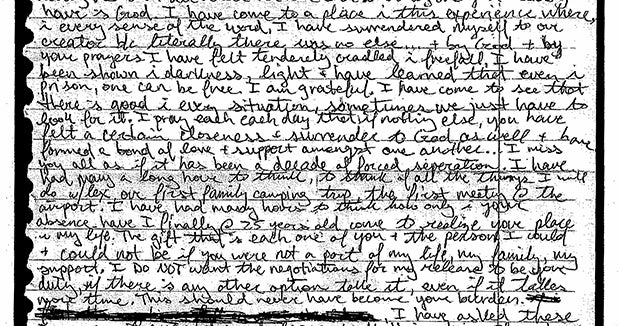 have is God. I have come to a place i this experience where,
i every sense of the word, I have surrendered myself to our
creator b/c literally there was no else... + by God + by
your prayers I have felt tenderly cradled i freefall. I have
been shown i darkness, light + have learned that even i
prison, one can be free. I am grateful. I have come to see that
there is good i every situation, sometimes we just have to
look for it. I pray each each day that if nothing else, you have
felt a certain closeness + surrender to God as well + have
formed a bond of love + support amongst one another... I miss
you all as if it has been a decade of forced seperation. I have
had many a long hour to think, to think of all the things I will
do w/ Lex, our first family camping trip, the first meeting @ the
airport. I have had many hours to think how only i your
absence have I finally @ 25 years old come to realize your place
i my life. The gift that is each one of you + the person I could
+ could not be if you were not a part of my life, my family, my
support. I DO NOT want the negotiations for my release to be your
duty, if there is any other option take it, even if it takes
more time. This should never have become your burden.
I have asked these